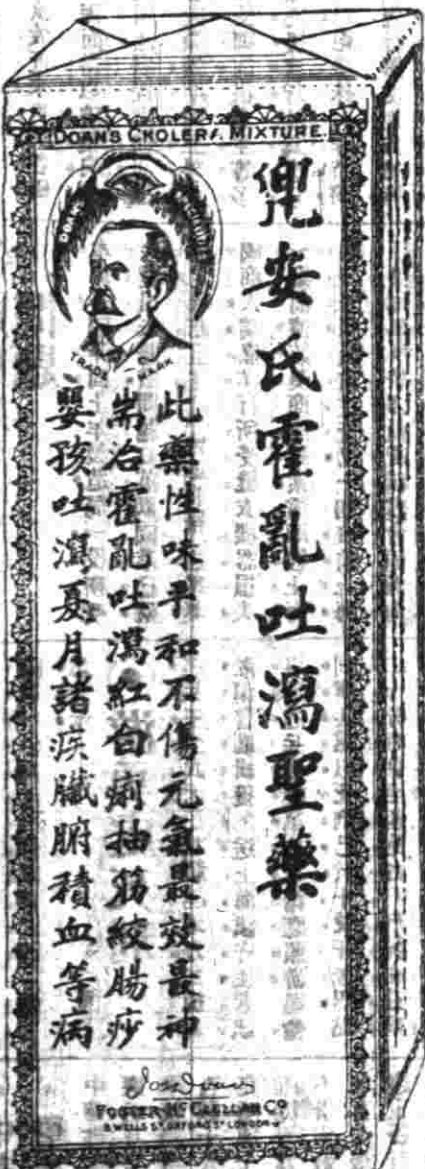 DOAN'S CHOLERA MIXTURE.
DOAN'S
TRADE MARK
兜安氏霍亂吐瀉聖藥
此藥性味平和不傷元氣最效最神
耑治霍亂吐瀉紅白痢抽筋絞腸痧
嬰孩吐瀉夏月諸疾臟腑積血等病
FOSTER-McCLELLAN CO
8 WELLS ST. OXFORD ST LONDON